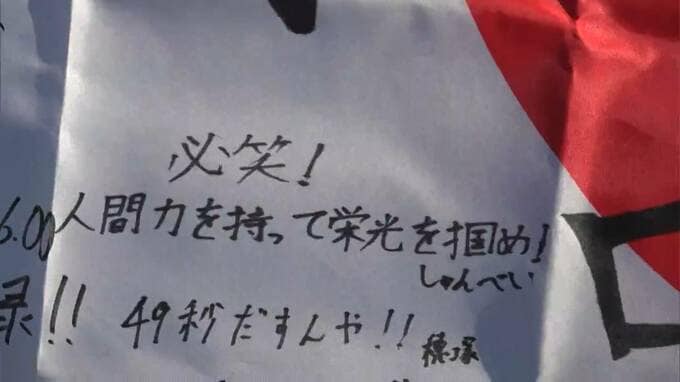 必笑!
6.00 人間力を持って栄光を掴め!
しゅんぺい
録!! 49秒だすんや!! 穂塚